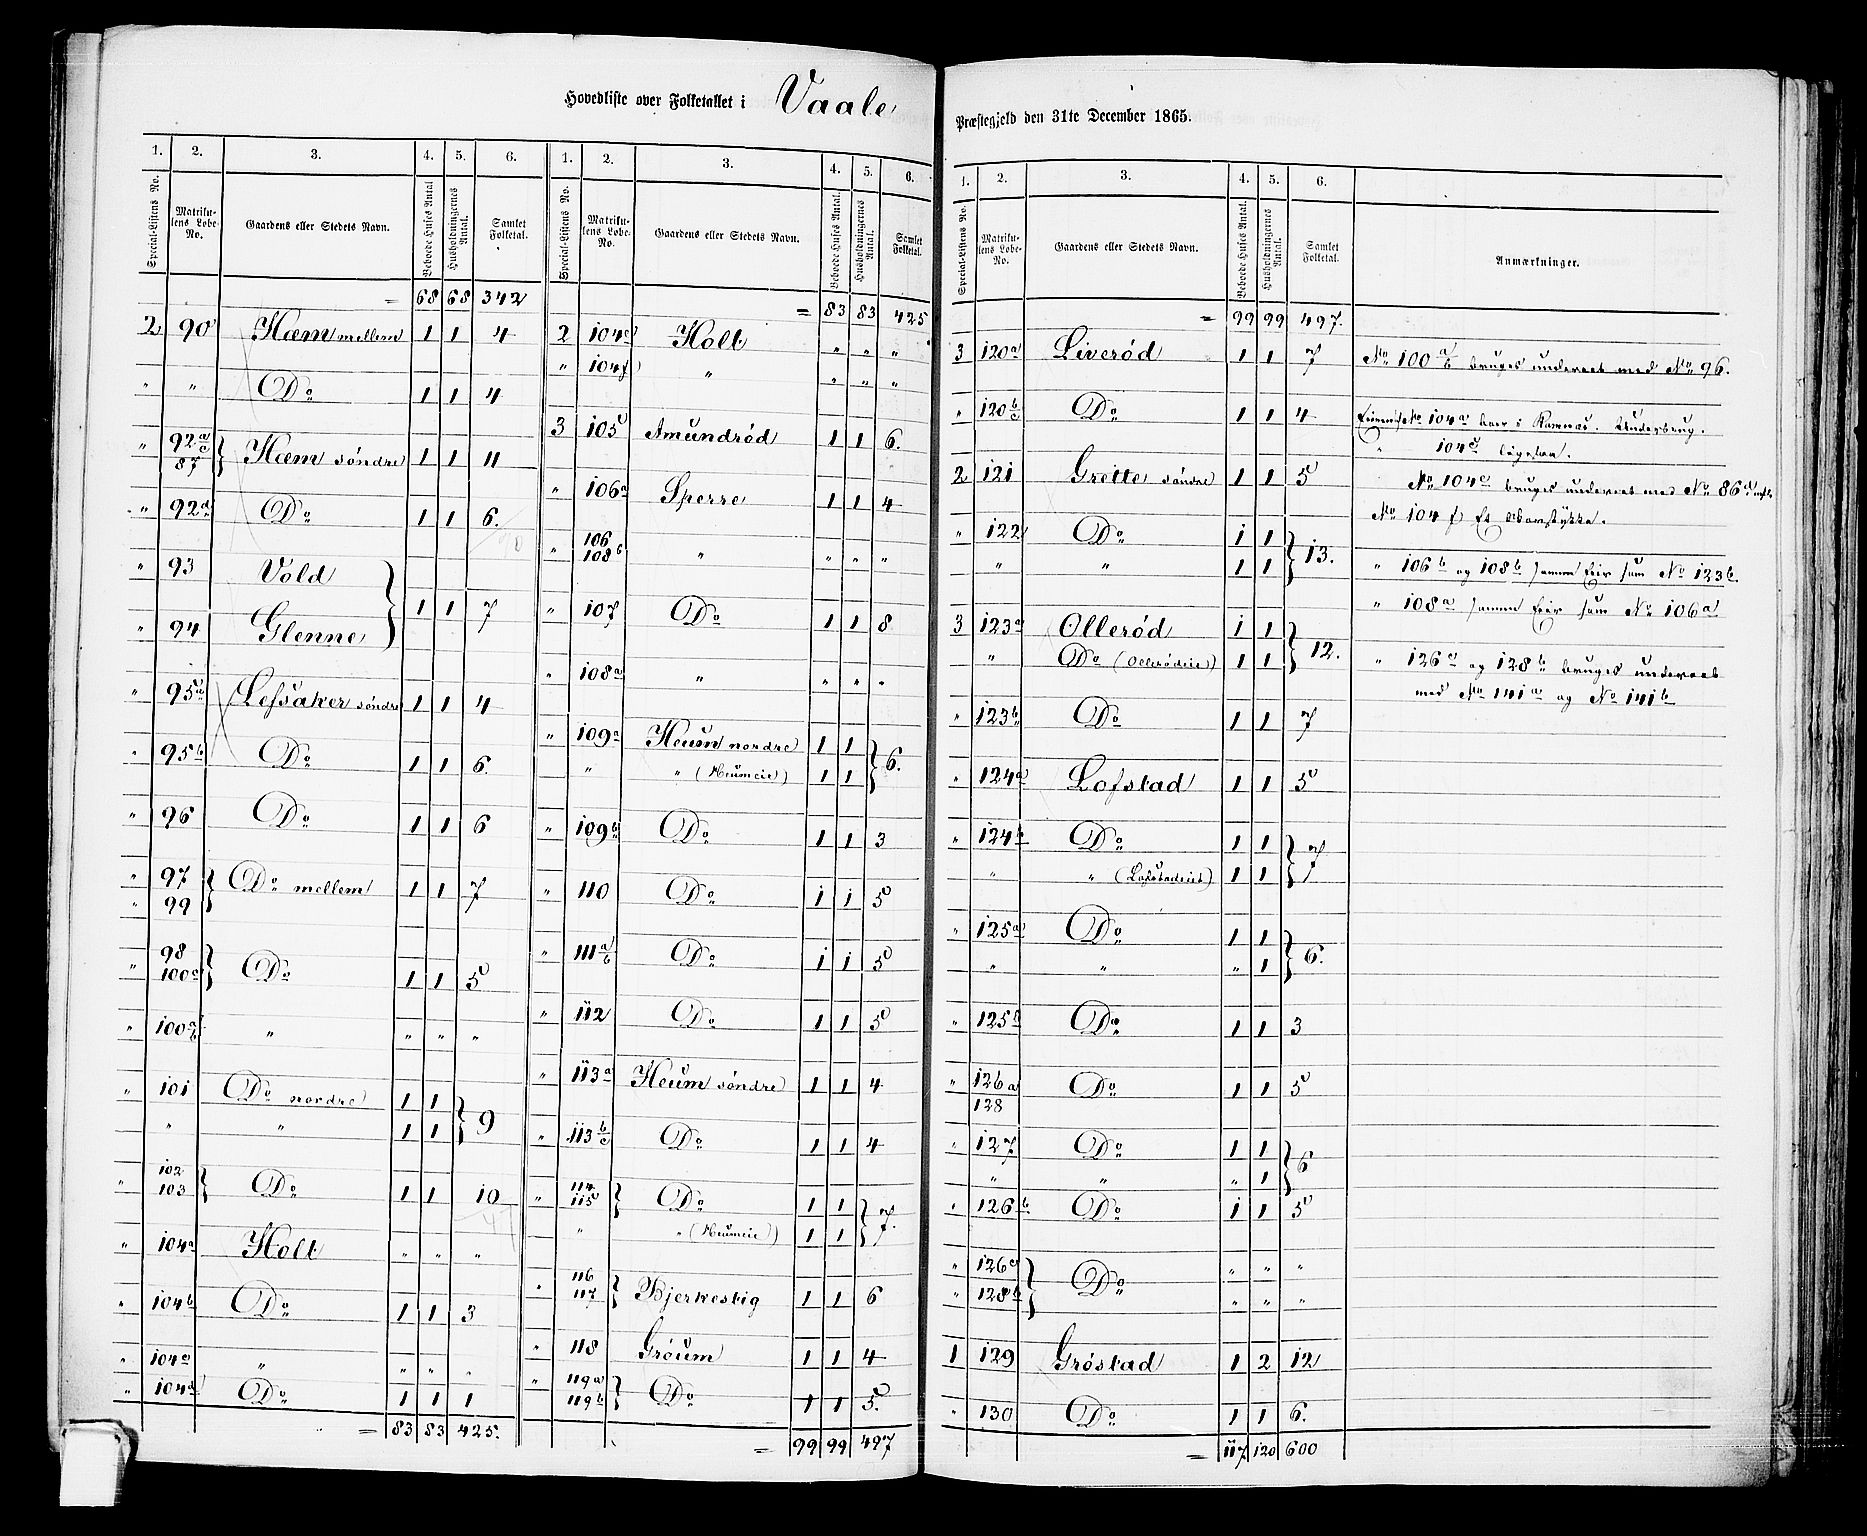 Hovedliste over Folketallet i Vaale Præstegjeld den 31te December 1865.
1. 2. 3. 4. 5. 6.
Special-Listens No. Matrikulens Løbe-No. Gaardens eller Stedets Navn. Beboede Huses Antal Husholdningernes Antal. Samlet Folketal.
= 68 68 342
2 90 Hæm mellem 1 1 4
" " Do 1 1 4
" 92 a/c 87 } Hæm søndre 1 1 11
" 92d Do 1 1 6.
" 93 Vold
" 94 Glenne } 1 1 7
" 95a Lefsaker søndre 1 1 4
" 95b Do 1 1 6
" 96 Do 1 1 6
" 97
" 99 } Do mellem 1 1 7
98
" 100a } Do 1 1 5
" 100 a/b " " " "
" 101 Do nordre 1 1
" " 1 1 } 9
102
" 103 } Do 1 1 10
" 104a Holt " " "
" 104b Do 1 1 3
" 104c " " " "
" 104d Do 1 1 1
= 83 83 425.
1. 2. 3. 4. 5. 6.
Special-Listens No. Matrikulens Løbe-No. Gaardens eller Stedets Navn. Beboede Huses Antal. Husholdningernes Antal. Samlet Folketal.
= 83 83 425
2 104e Holt " " "
" 104f " " " "
3 105 Amundrød 1 1 6.
" 106a Sperre 1 1 4
106
" 108b " " " "
" 107 Do 1 1 8
" 108a " " " "
" 109a Heum nordre 1 1
" " (Heumeie) 1 1 } 6.
" 109b Do 1 1 3
" 110 Do 1 1 5
" 111 a/b Do 1 1 5
" 112 Do 1 1 5
" 113a Heum søndre 1 1 4
" 113 b/c Do 1 1 4
114
" 115 } Do 1 1
" " (Heumeie) 1 1 } 7.
116
" 117 } Bjerkestig 1 1 6
" 118 Grøum 1 1 4
" 119a
119b } Do 1 1 5.
= 99 99 497
1. 2. 3. 4. 5. 6.
Special-Listens No. Matrikulens Løbe-No. Gaardens eller Stedets Navn. Beboede Huses Antal. Husholdningernes Antal. Samlet Folketal. Anmærkninger.
= 99 99 497.
3 120a Liverød 1 1 7
" 120 b/c Do 1 1 4
2 121 Grette søndre 1 1 5
" 122 Do 1 1
" " 1 1 } 13.
3 123a Ollerød 1 1
" Do (Ollerødeie) 1 1 } 12.
" 123b Do 1 1 7
" 124a Lofstad 1 1 5
" 124b Do 1 1
" " (Lofstadeiet) 1 1 } 7
" 125a Do 1 1
" " " 1 } 6.
" 125b Do 1 1 3
" 126a
128 Do 1 1 5
" 127 Do 1 1
" " " 1 } 6
" 126b Do 1 1 5
" 126c
" 128b } Do " " "
" " "
1 129 Grøstad 1 2 12
" 130 Do 1 1 6.
= 117 120 600
No 100 a/b bruges underet med No 96.
No 104a boer i Ramnæs. Underbrug.
" 104c ligesaa.
No 104e bruges underet med No 86a
No 104f Et
" 106b og 108b samme Eier som No 123b.
" 108a samme Eier som No 106a
" 126c og 128b bruges underet
med No 141a og No 141b